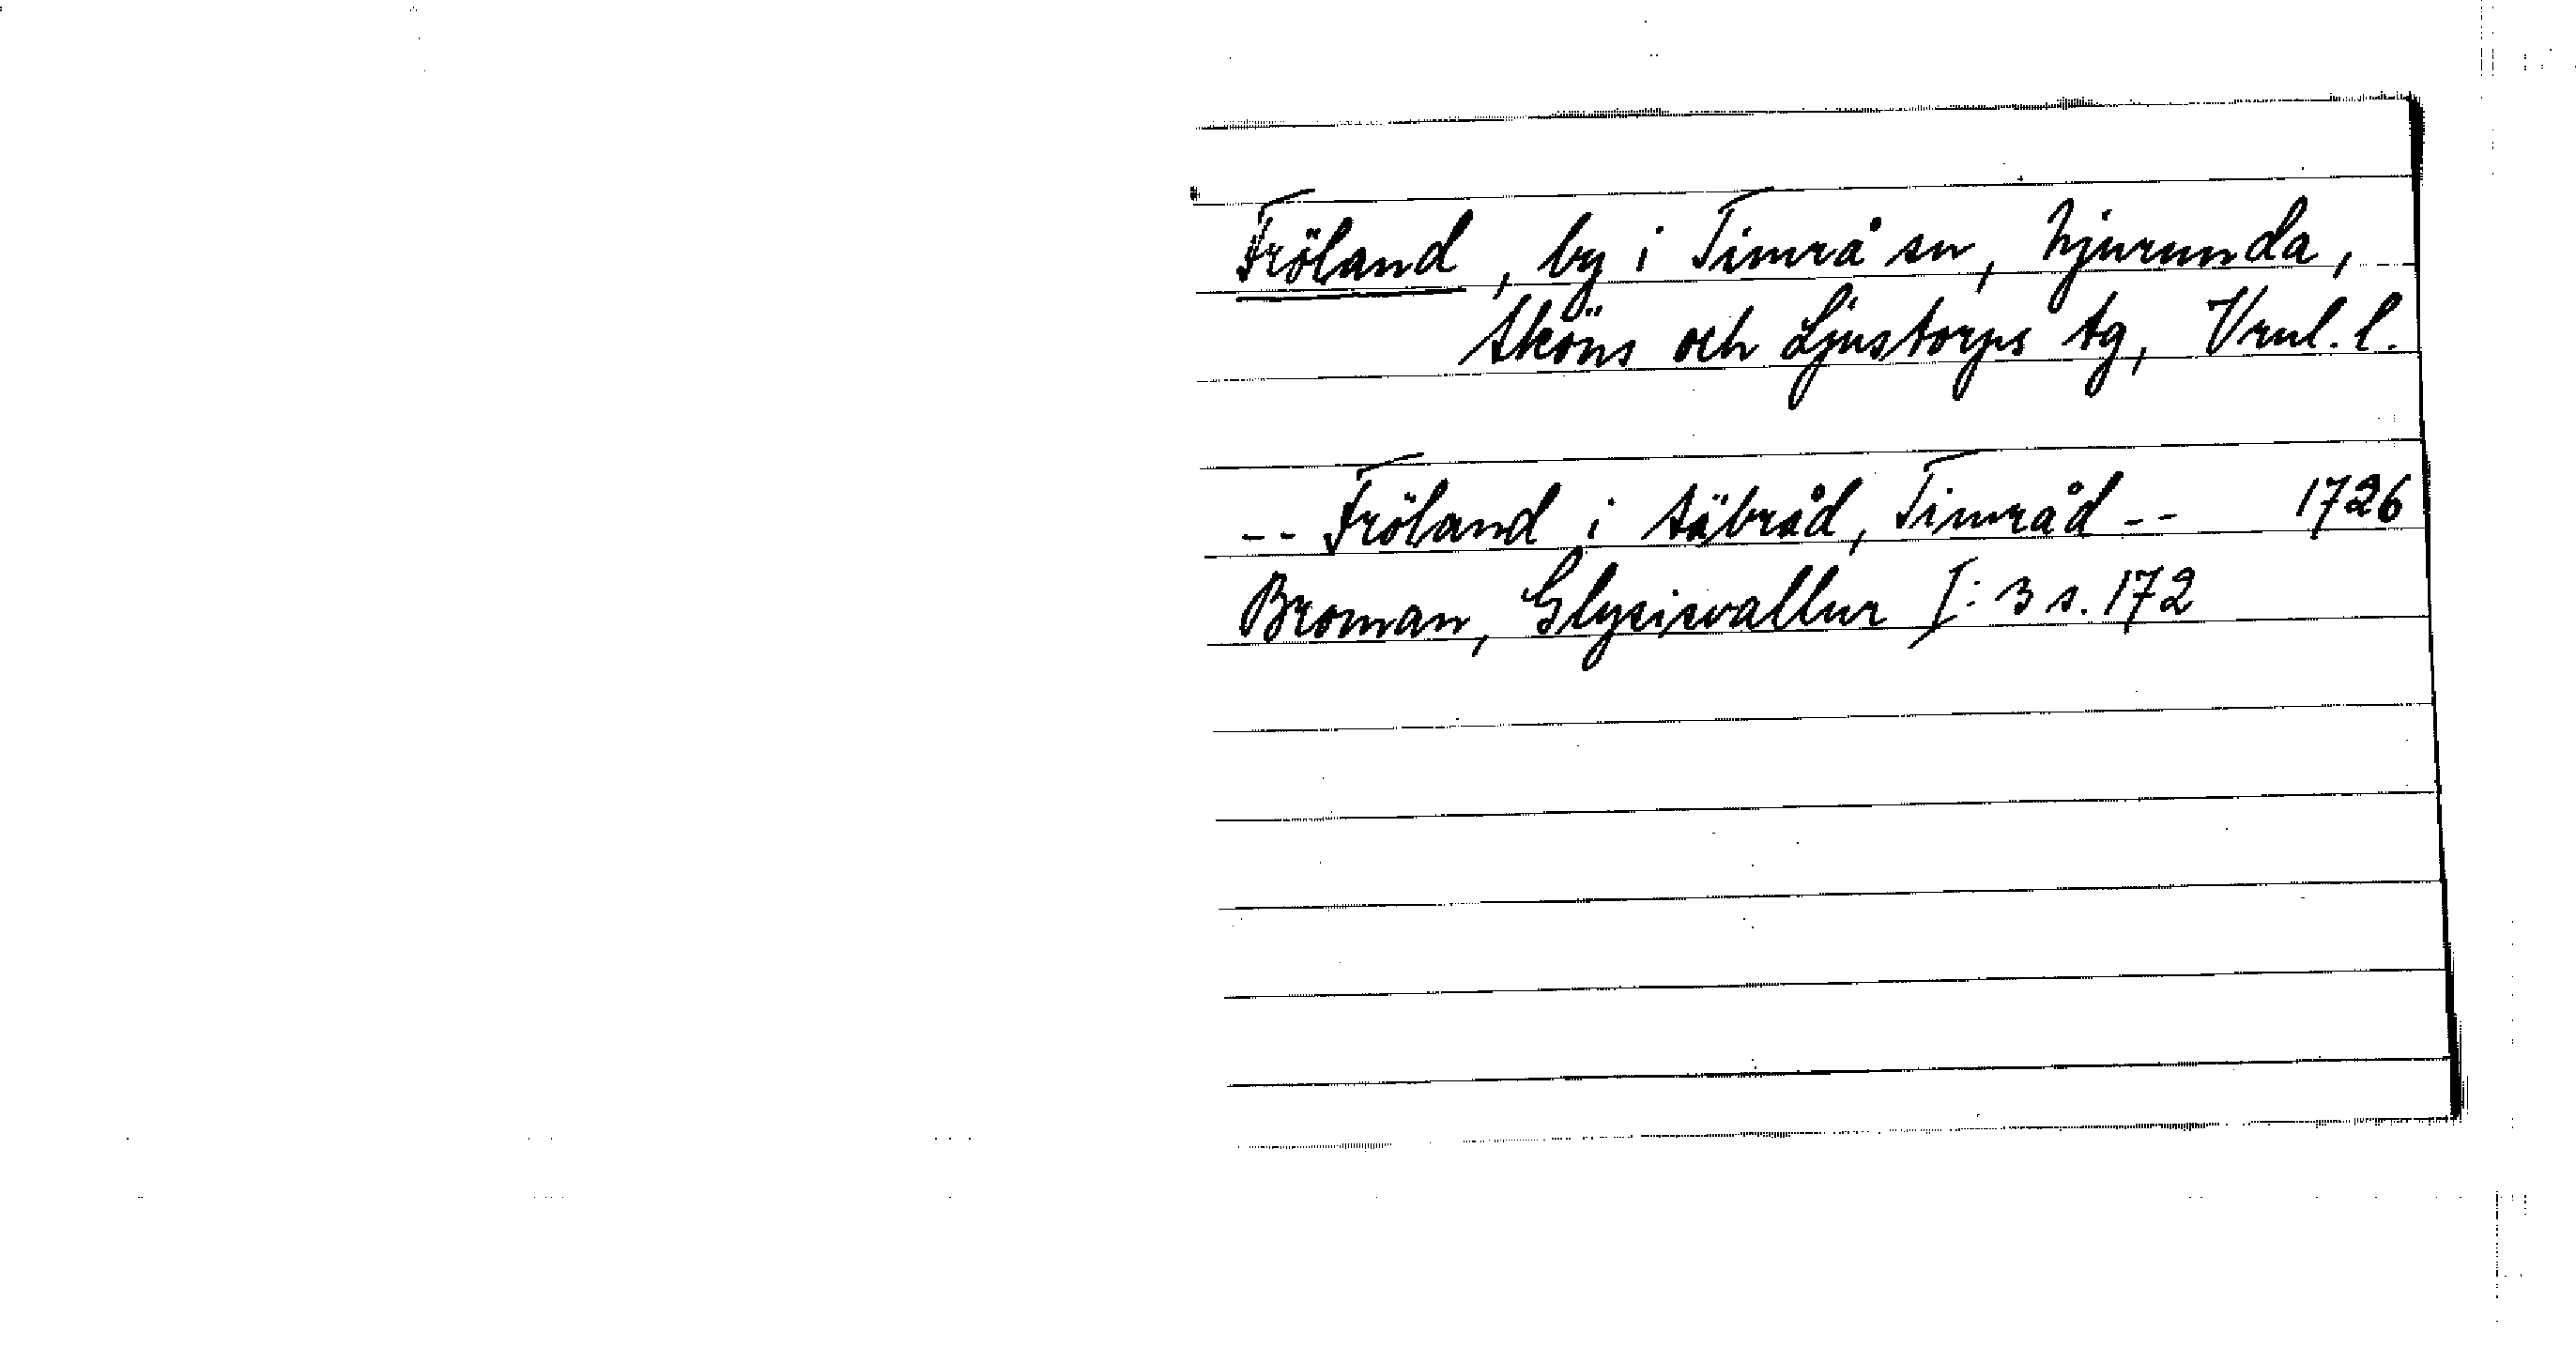 Fröland, by i Timrå sn, Njurunda,
Sköns och Ljustorps tg, Vrnl. l.
-- Fröland i Säbråd, Timråd -- 1726
Broman, Glysisvallur I: 3 s. 172